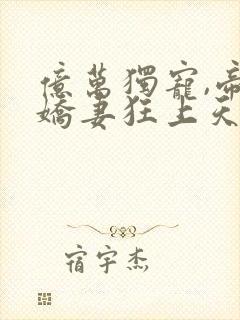 億萬獨寵,帝
嬌妻狂上天
宿宇杰